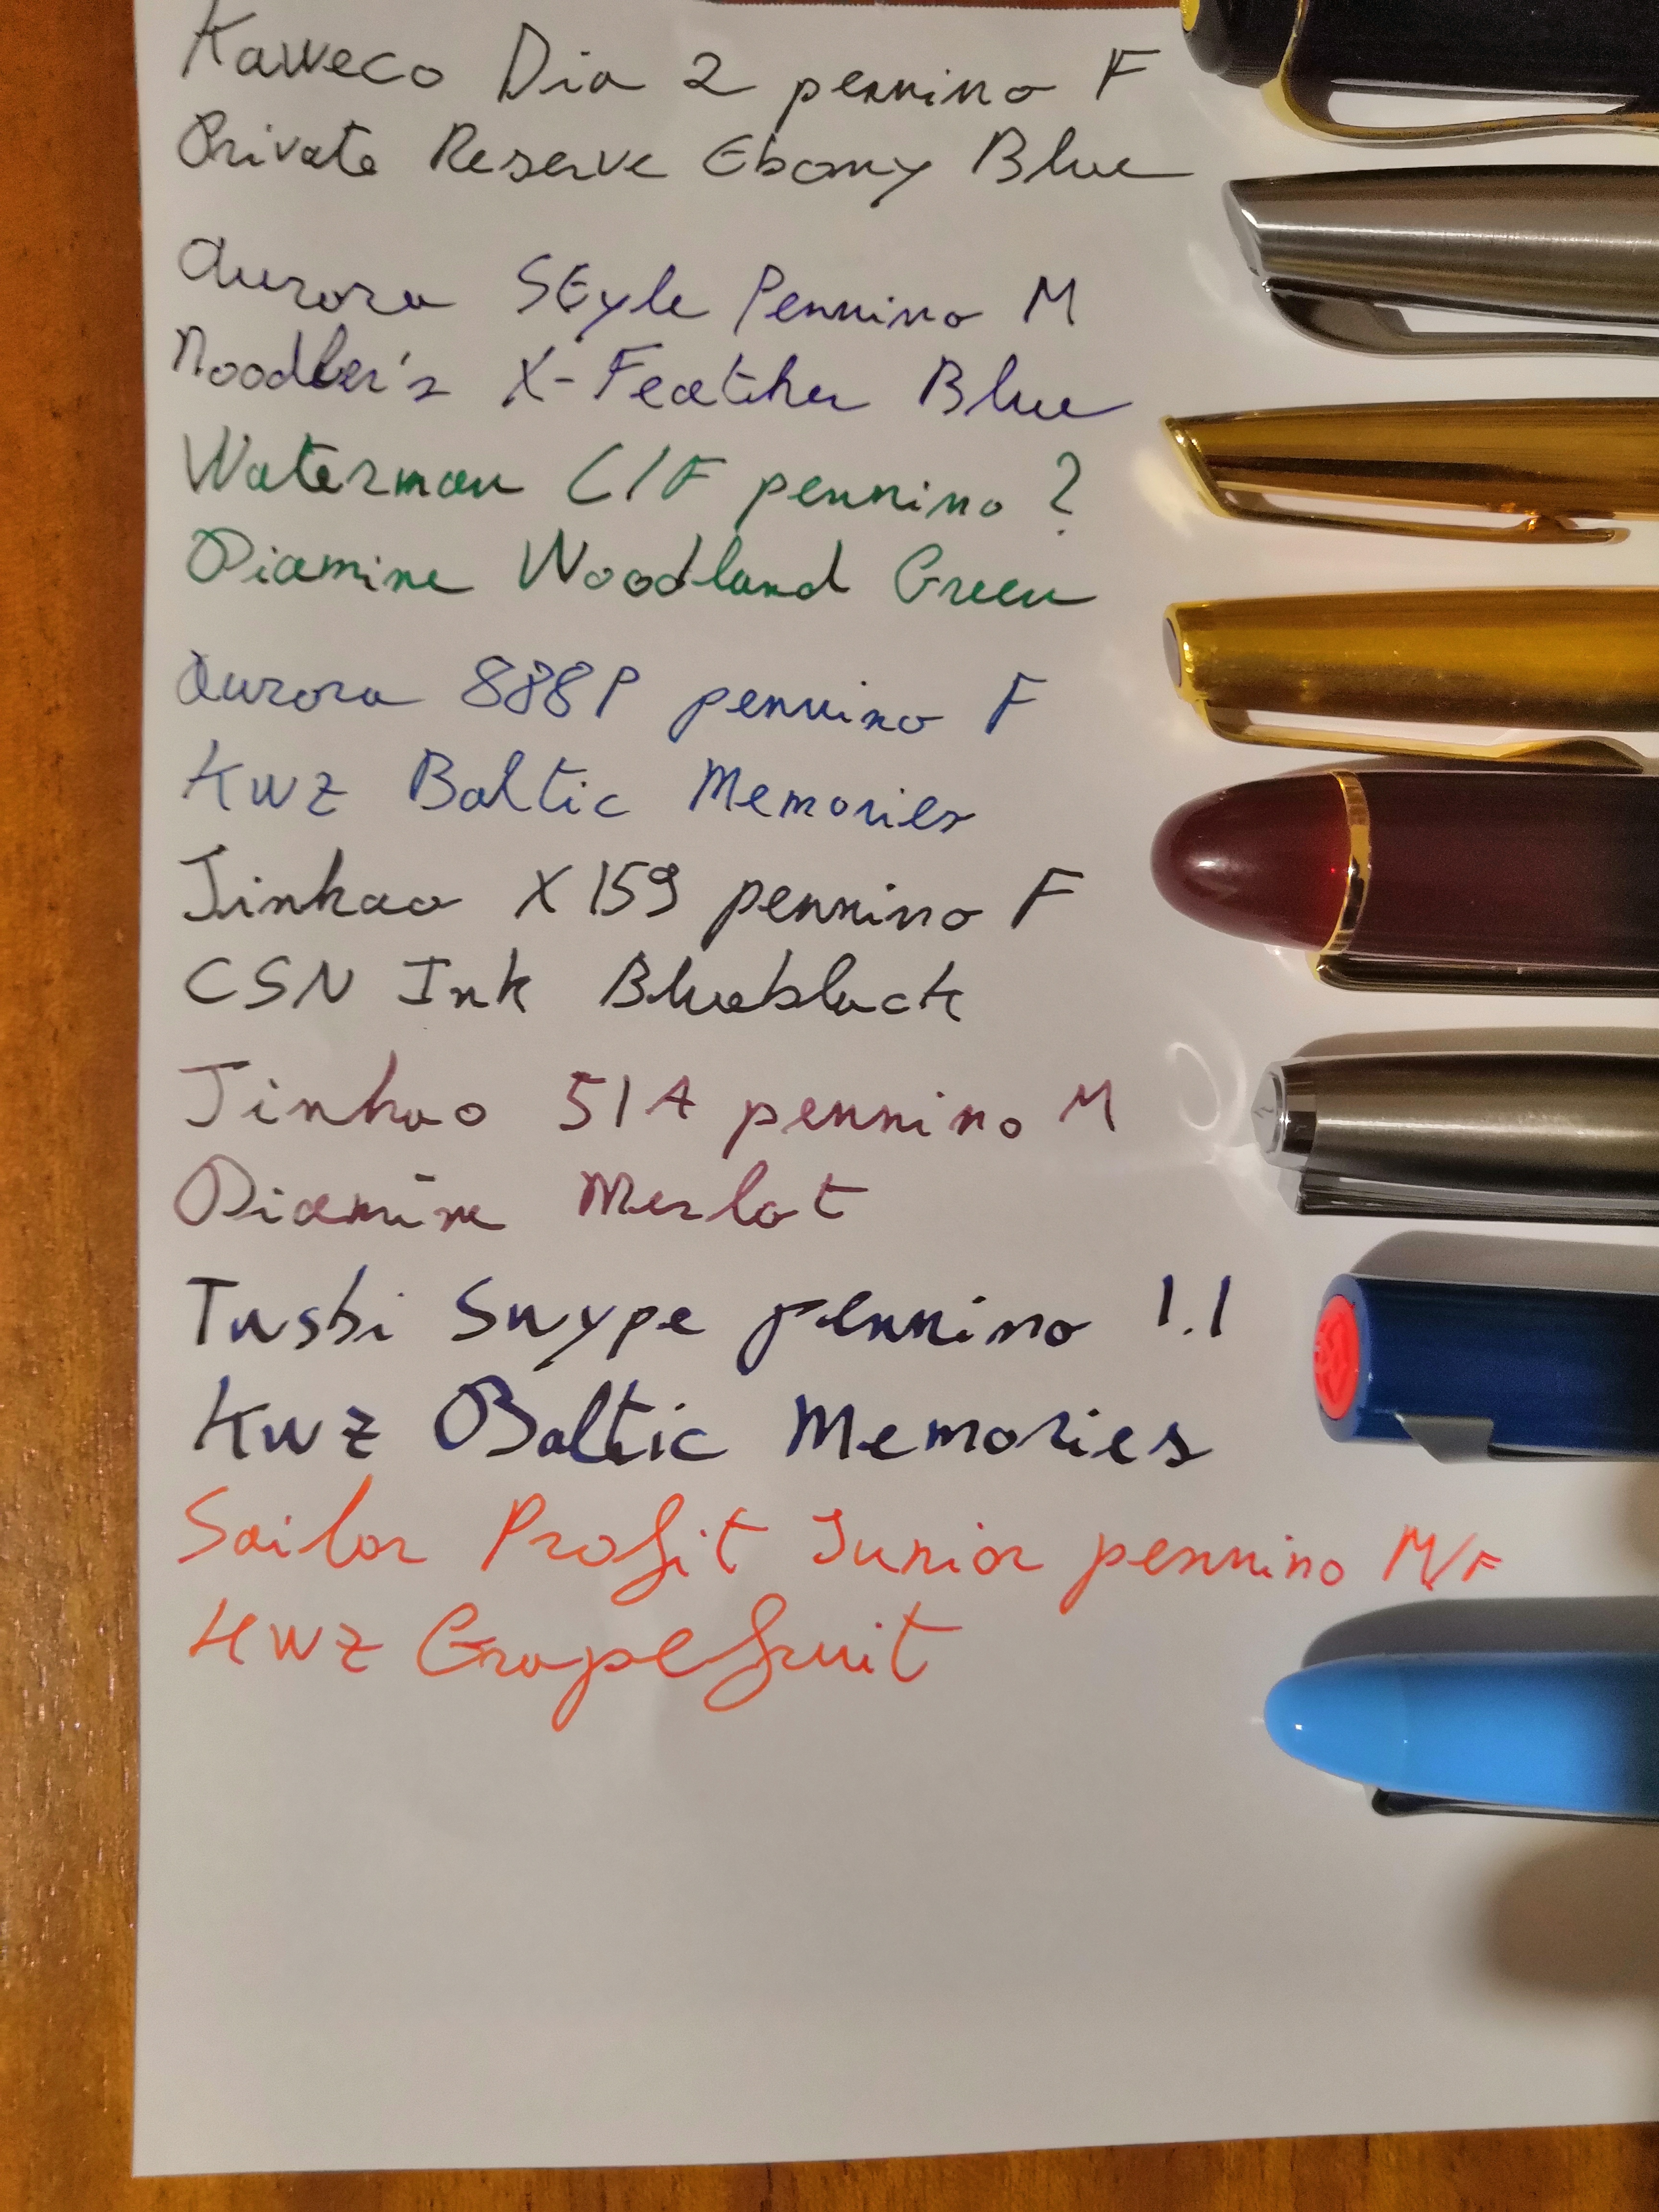 Kaweco Dia 2 pennino F
Private Reserve Ebony Blue
Aurora Style Pennino M
Noodler's X-Feather Blue
Waterman C/F pennino ?
Diamine Woodland Green
Aurora 888P pennino F
KWZ Baltic Memories
Jinhao X159 pennino F
CSN Ink Blueblack
Jinhao 51A pennino M
Diamine Merlot
Twsbi Swype pennino 1.1
KWZ Baltic Memories
Sailor Profit Junior pennino M/F
KWZ Grapefruit